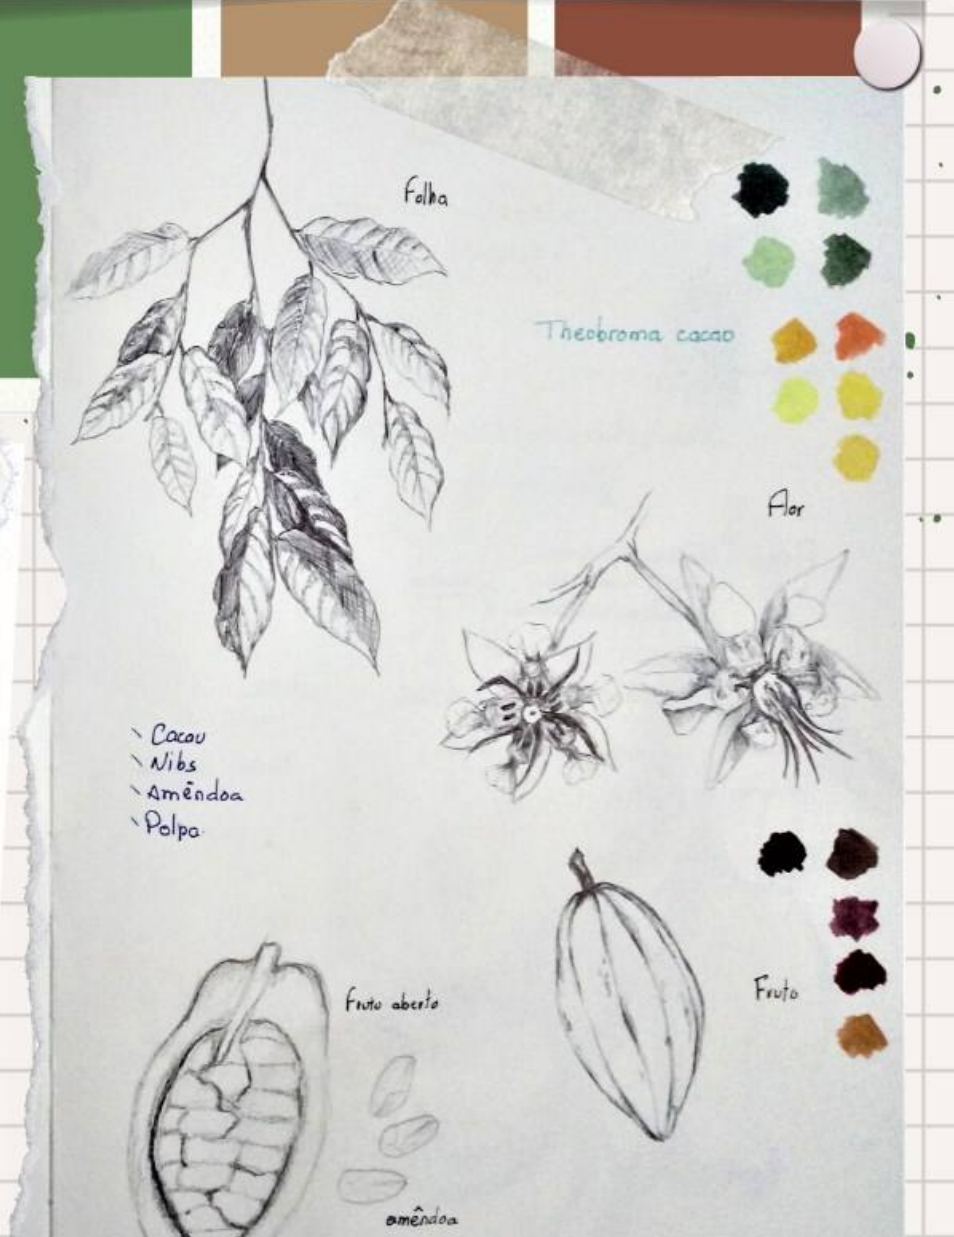 Folha
Theobroma cacao
Flor
Cacau
Nibs
Amêndoa
Polpa
Fruto
Fruto aberto
amêndoa